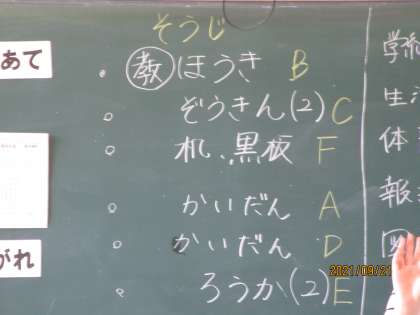 そうじ
あて
教 ほうき B
ぞうきん(2) C
机、黒板 F
かいだん A
かいだん D
ろうか(2) E
がれ
学術
生活
体
報
図
2021/09/21